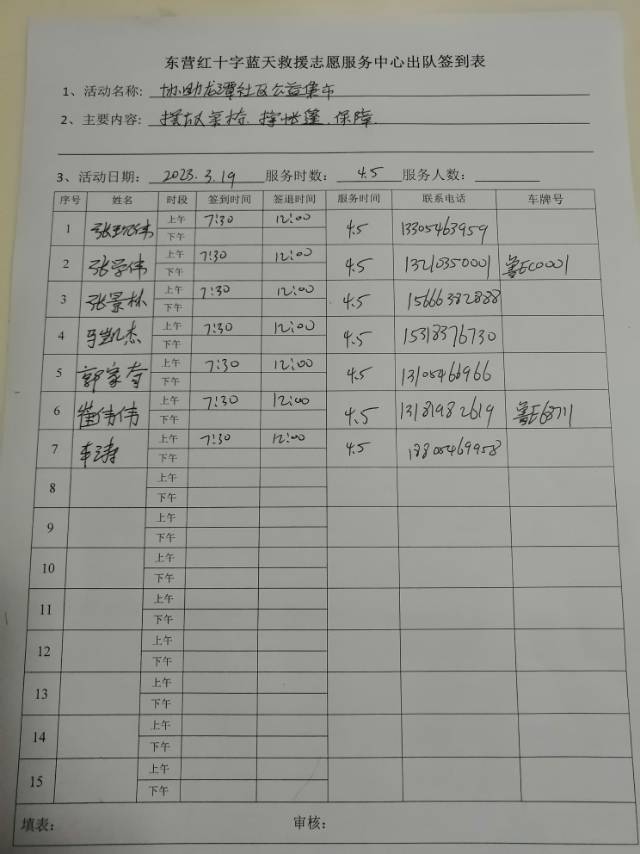 东营红十字蓝天救援志愿服务中心出队签到表
1、活动名称: 协助龙潭社区公益集市
2、主要内容: 摆放桌椅、撑帐篷、保障
3、活动日期: 2023.3.19 服务时数: 4.5 服务人数:
序号 姓名 时段 签到时间 签退时间 服务时间 联系电话 车牌号
1 上午 7:30 12:00 4.5 13305463959
下午
2 张学伟 上午 7:30 12:00 4.5 13210350001 鲁EC0001
下午
3 张景林 上午 7:30 12:00 4.5 15666382888
下午
4 马凯杰 上午 7:30 12:00 4.5 15318376730
下午
5 郭家奇 上午 7:30 12:00 4.5
下午
6 崔伟伟 上午 7:30 12:00 4.5 13181982619
下午
7 车涛 上午 7:30 12:00 4.5 18805469958
下午
8 上午
下午
9 上午
下午
10 上午
下午
11 上午
下午
12 上午
下午
13 上午
下午
14 上午
下午
15 上午
下午
填表: 审核: